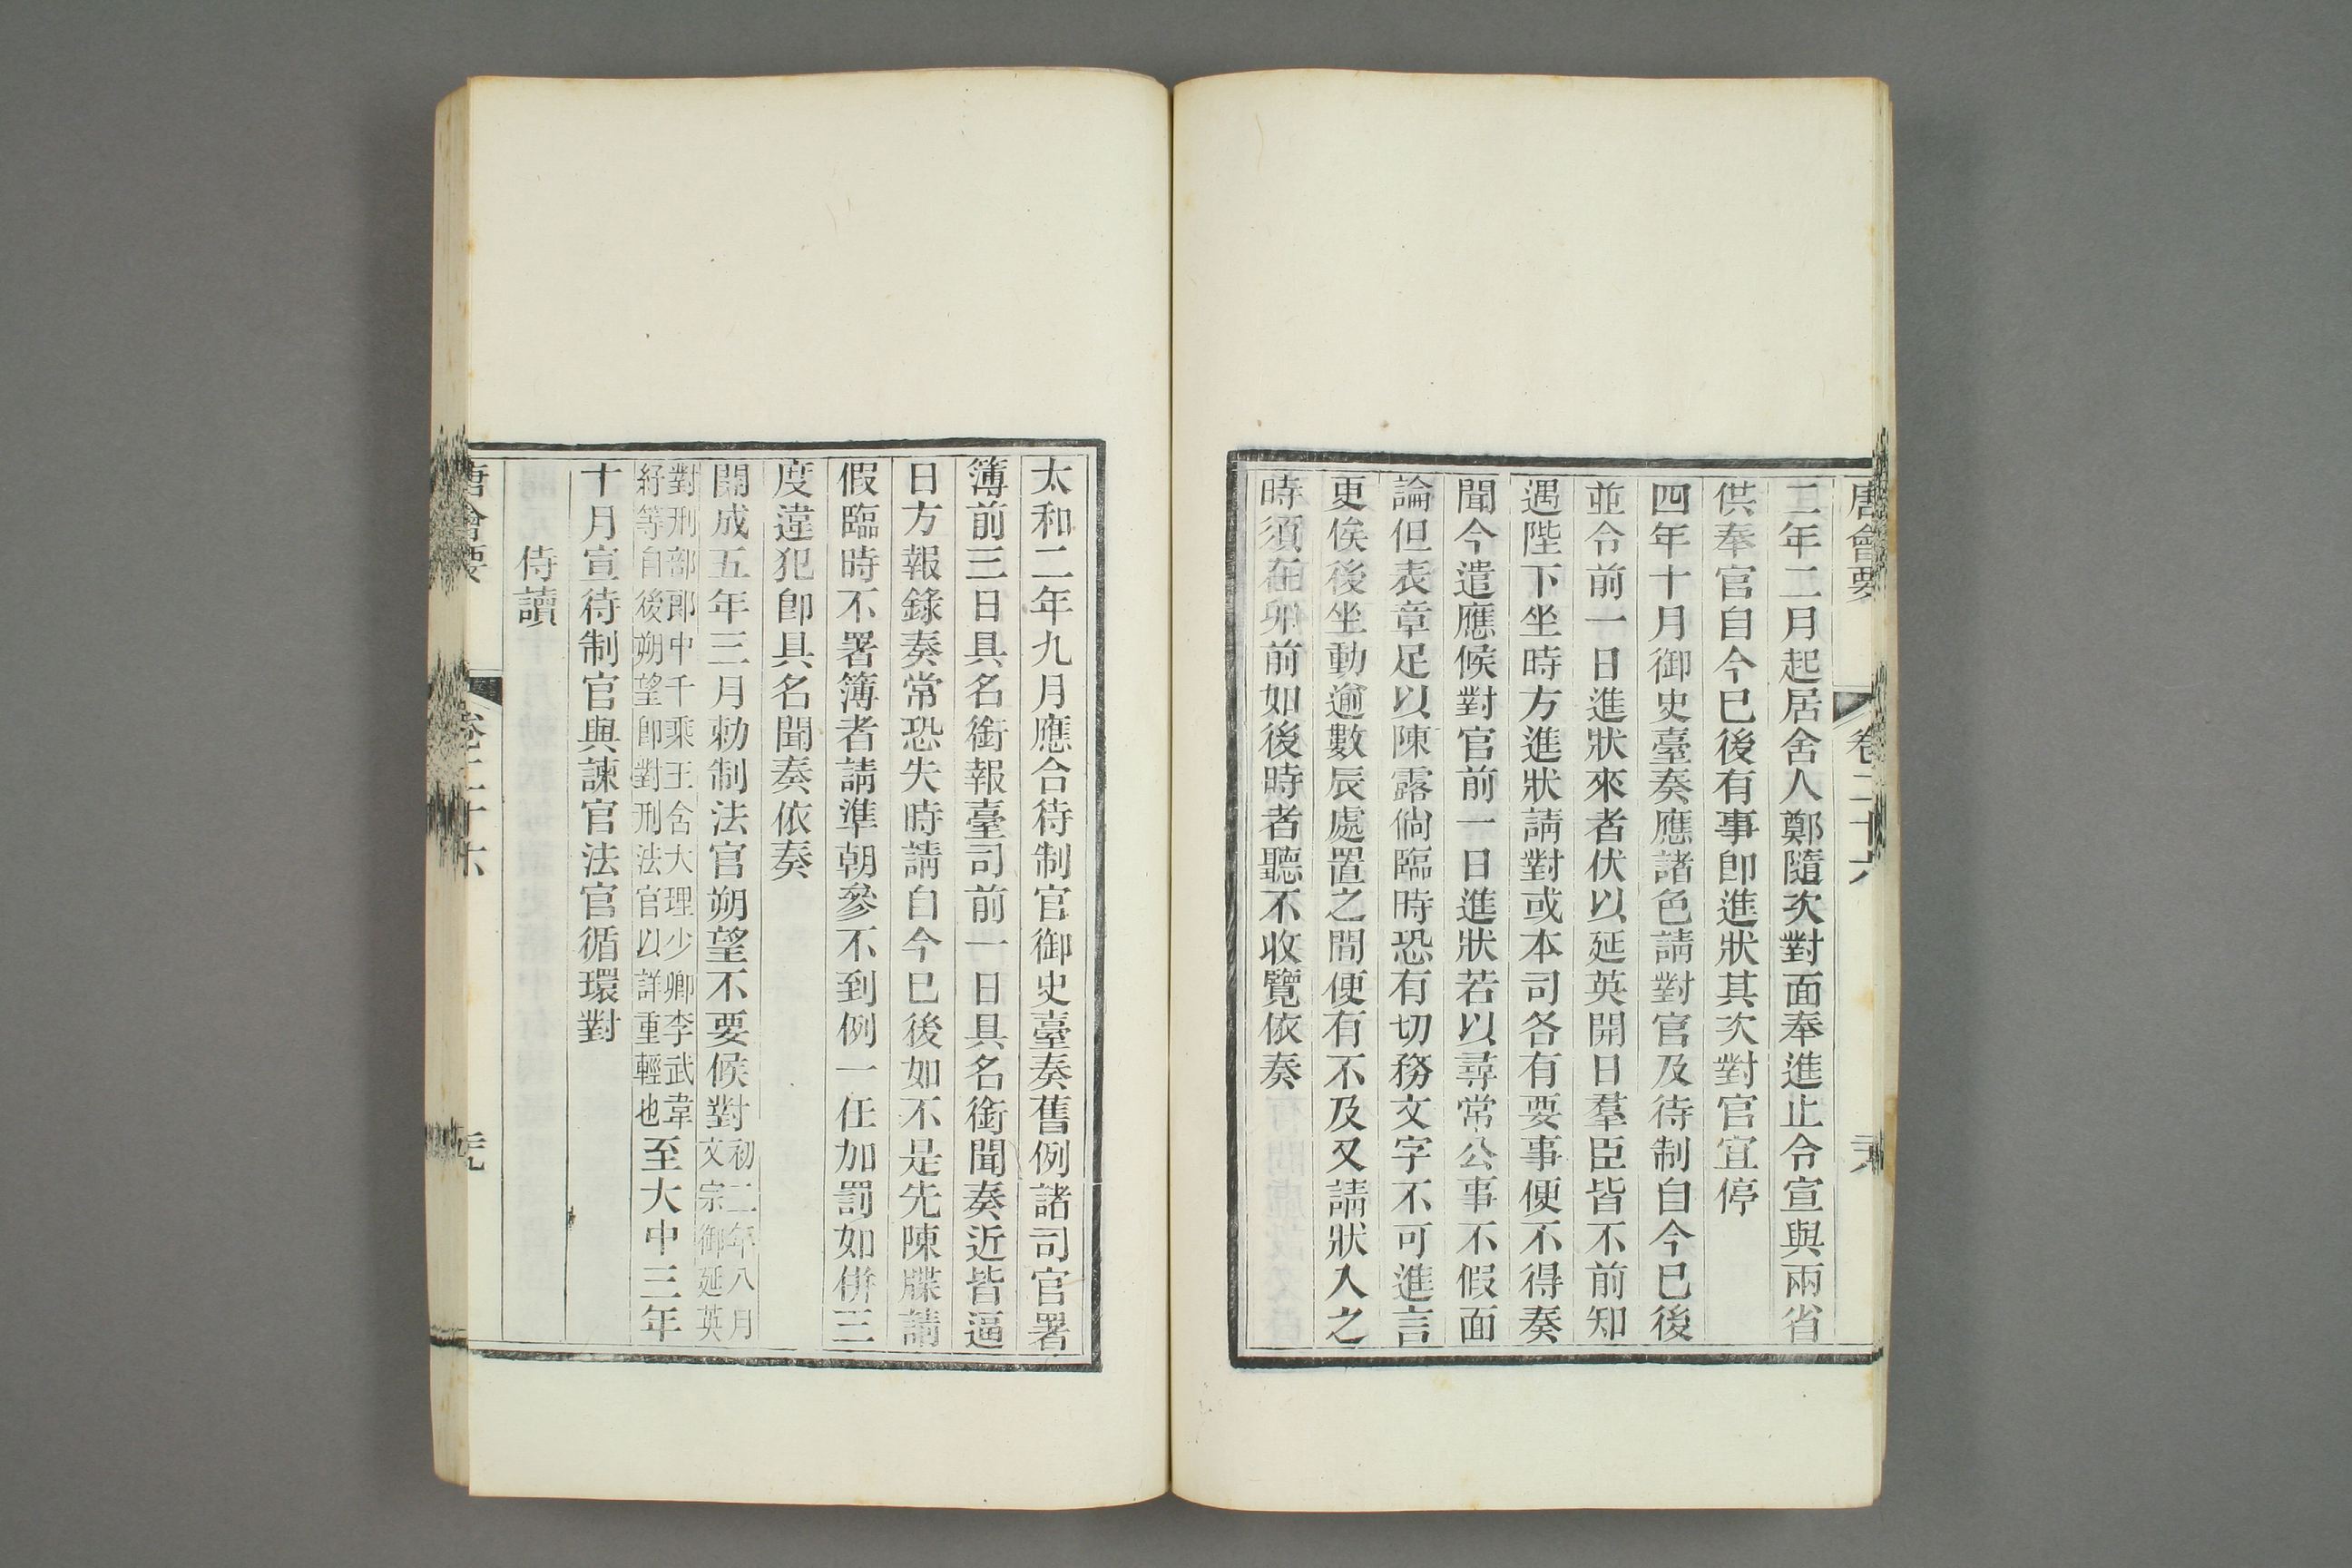 唐會要 卷二十六
二年二月起居舍人鄭隨次對面奉進止令宣與兩省
供奉官自今已後有事卽進狀其次對官宜停
四年十月御史臺奏應諸色請對官及待制自今已後
並令前一日進狀來者伏以延英開日羣臣皆不前知
遇陛下坐時方進狀請對或本司各有要事便不得奏
聞今遣應候對官前一日進狀若以尋常公事不假面
論但表章足以陳露倘臨時恐有切務文字不可進言
更俟後坐動逾數辰處置之間便有不及又請狀入之
時須在卯前如後時者聽不收覽依奏
太和二年九月應合待制官御史臺奏舊例諸司官署
簿前三日具名銜報臺司前一日具名銜聞奏近皆逼
日方報錄奏常恐失時請自今已後如不是先陳牒請
假臨時不署簿者請準朝參不到例一任加罰如併三
度違犯卽具名聞奏依奏
開成五年三月勅制法官朔望不要候對初二年八月文宗御延英
對刑部郎中千乘王含大理少卿李武韋
紓等自後朔望卽對刑法官以詳重輕也至大中三年
十月宣待制官與諫官法官循環對
侍讀
唐會要 卷二十六